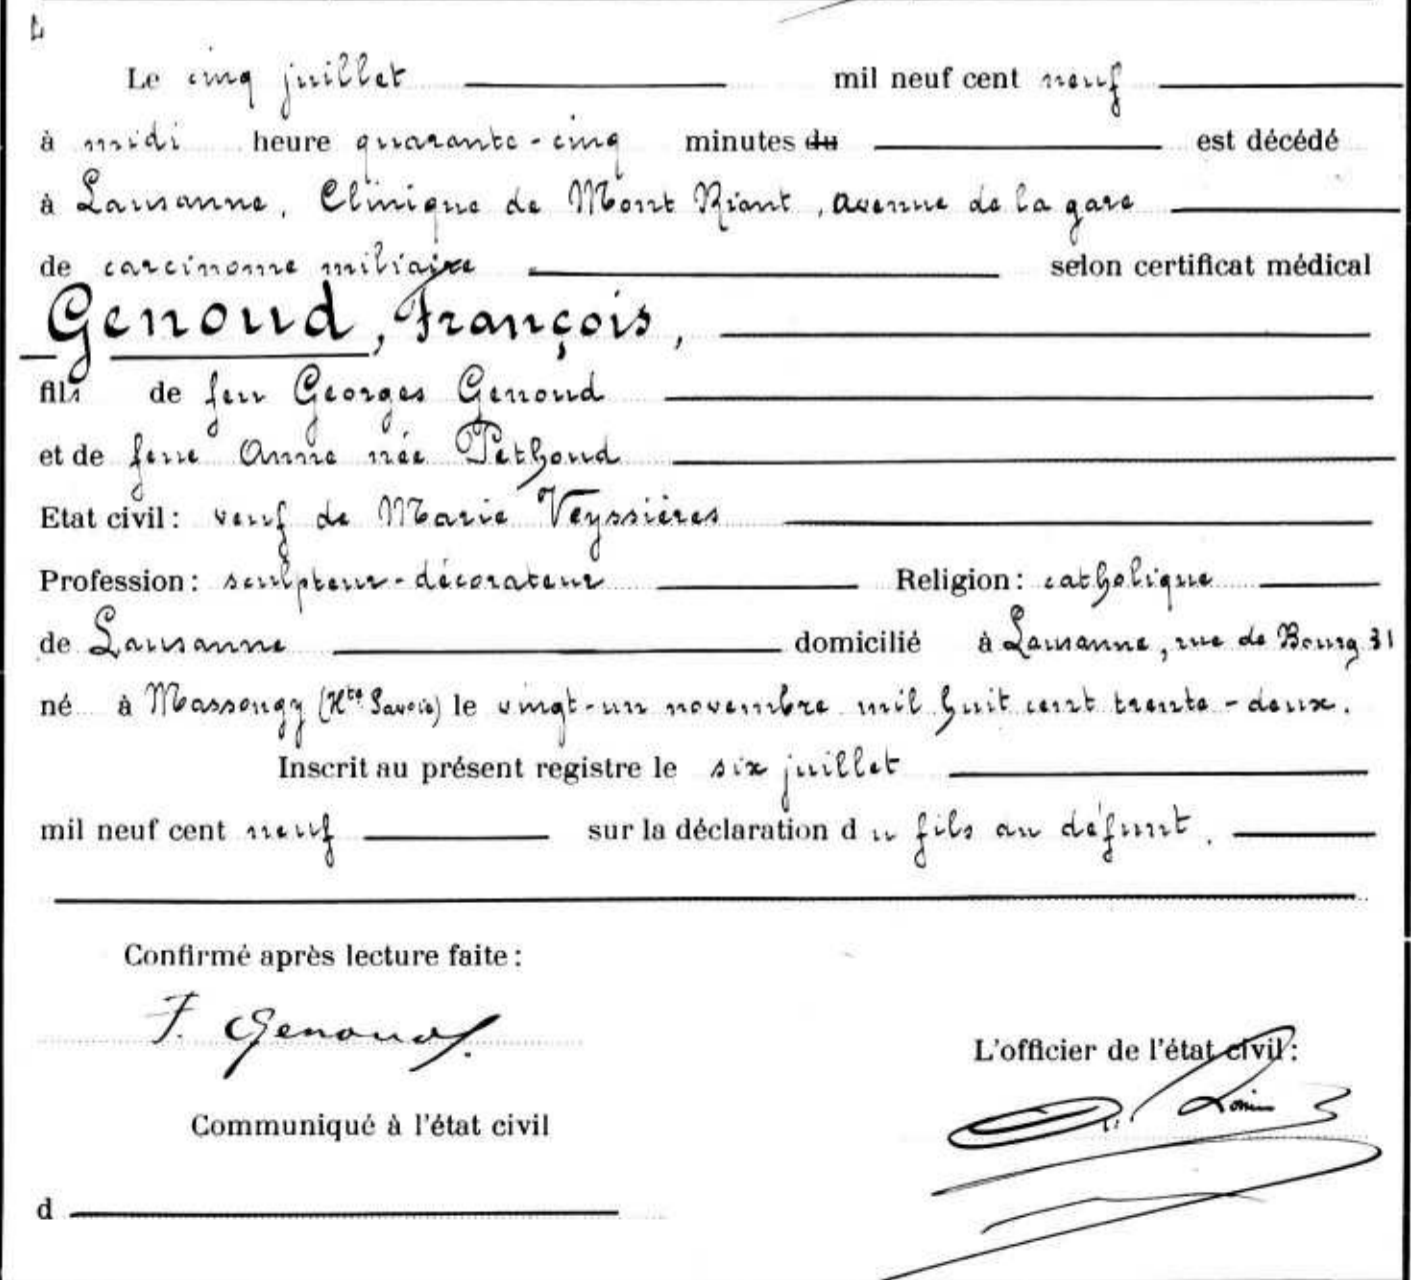 Le cinq juillet mil neuf cent neuf
à midi heure quarante-cinq minutes du est décédé
à Lausanne, Clinique de Mont Riant, avenue de la gare
de carcinome miliaire selon certificat médical
Genoud, François,
fils de feu Georges Genoud
et de feue Anne née Pethoud
Etat civil : veuf de Marie Veyssières
Profession : sculpteur-décorateur Religion : catholique
de Lausanne domicilié à Lausanne, rue de Bourg 31
né à Massongy (Hte Savoie) le vingt-un novembre mil huit cent trente-deux.
Inscrit au présent registre le six juillet
mil neuf cent neuf sur la déclaration du fils au défunt.
Confirmé après lecture faite :
F. Genoud.
L'officier de l'état civil :
Communiqué à l'état civil
d